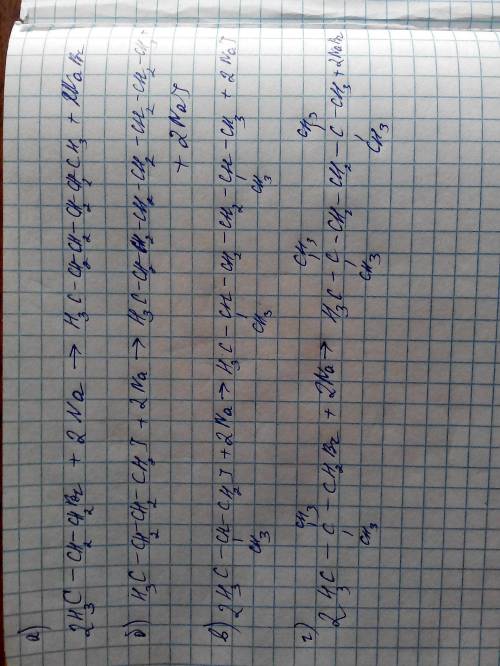 а)
2H₃C – CH₂ – CH₂Br + 2Na → H₃C – CH₂ – CH₂ – CH₂ – CH₂ – CH₃ + 2NaBr
б)
H₃C – CH₂ – CH₂ – CH₂J + 2Na → H₃C – CH₂ – CH₂ – CH₂ – CH₂ – CH₂ – CH₂ – CH₃
+ 2NaJ
в)
2H₃C – CH – CH₂J + 2Na → H₃C – CH – CH₂ – CH₂ – CH – CH₃ + 2NaJ
CH₃ CH₃ CH₃
г)
CH₃ CH₃ CH₃
2H₃C – C – CH₂Br + 2Na → H₃C – C – CH₂ – CH₂ – C – CH₃ + 2NaBr
CH₃ CH₃ CH₃